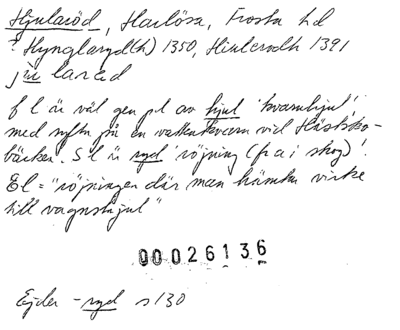 Hjularöd, Harlösa, Frosta hd
? Hynglaryd(h) 1350, Hiulerodh 1391
jularöd
f l är väl gen pl av hjul 'kvarnhjul',
med syftn på en vattenkvarn vid
bäcken. S l är ryd 'röjning (fr a i skog)'.
El = "röjningen där man hämtar virke
till vagnshjul"
00026136
Ejder - ryd s 130